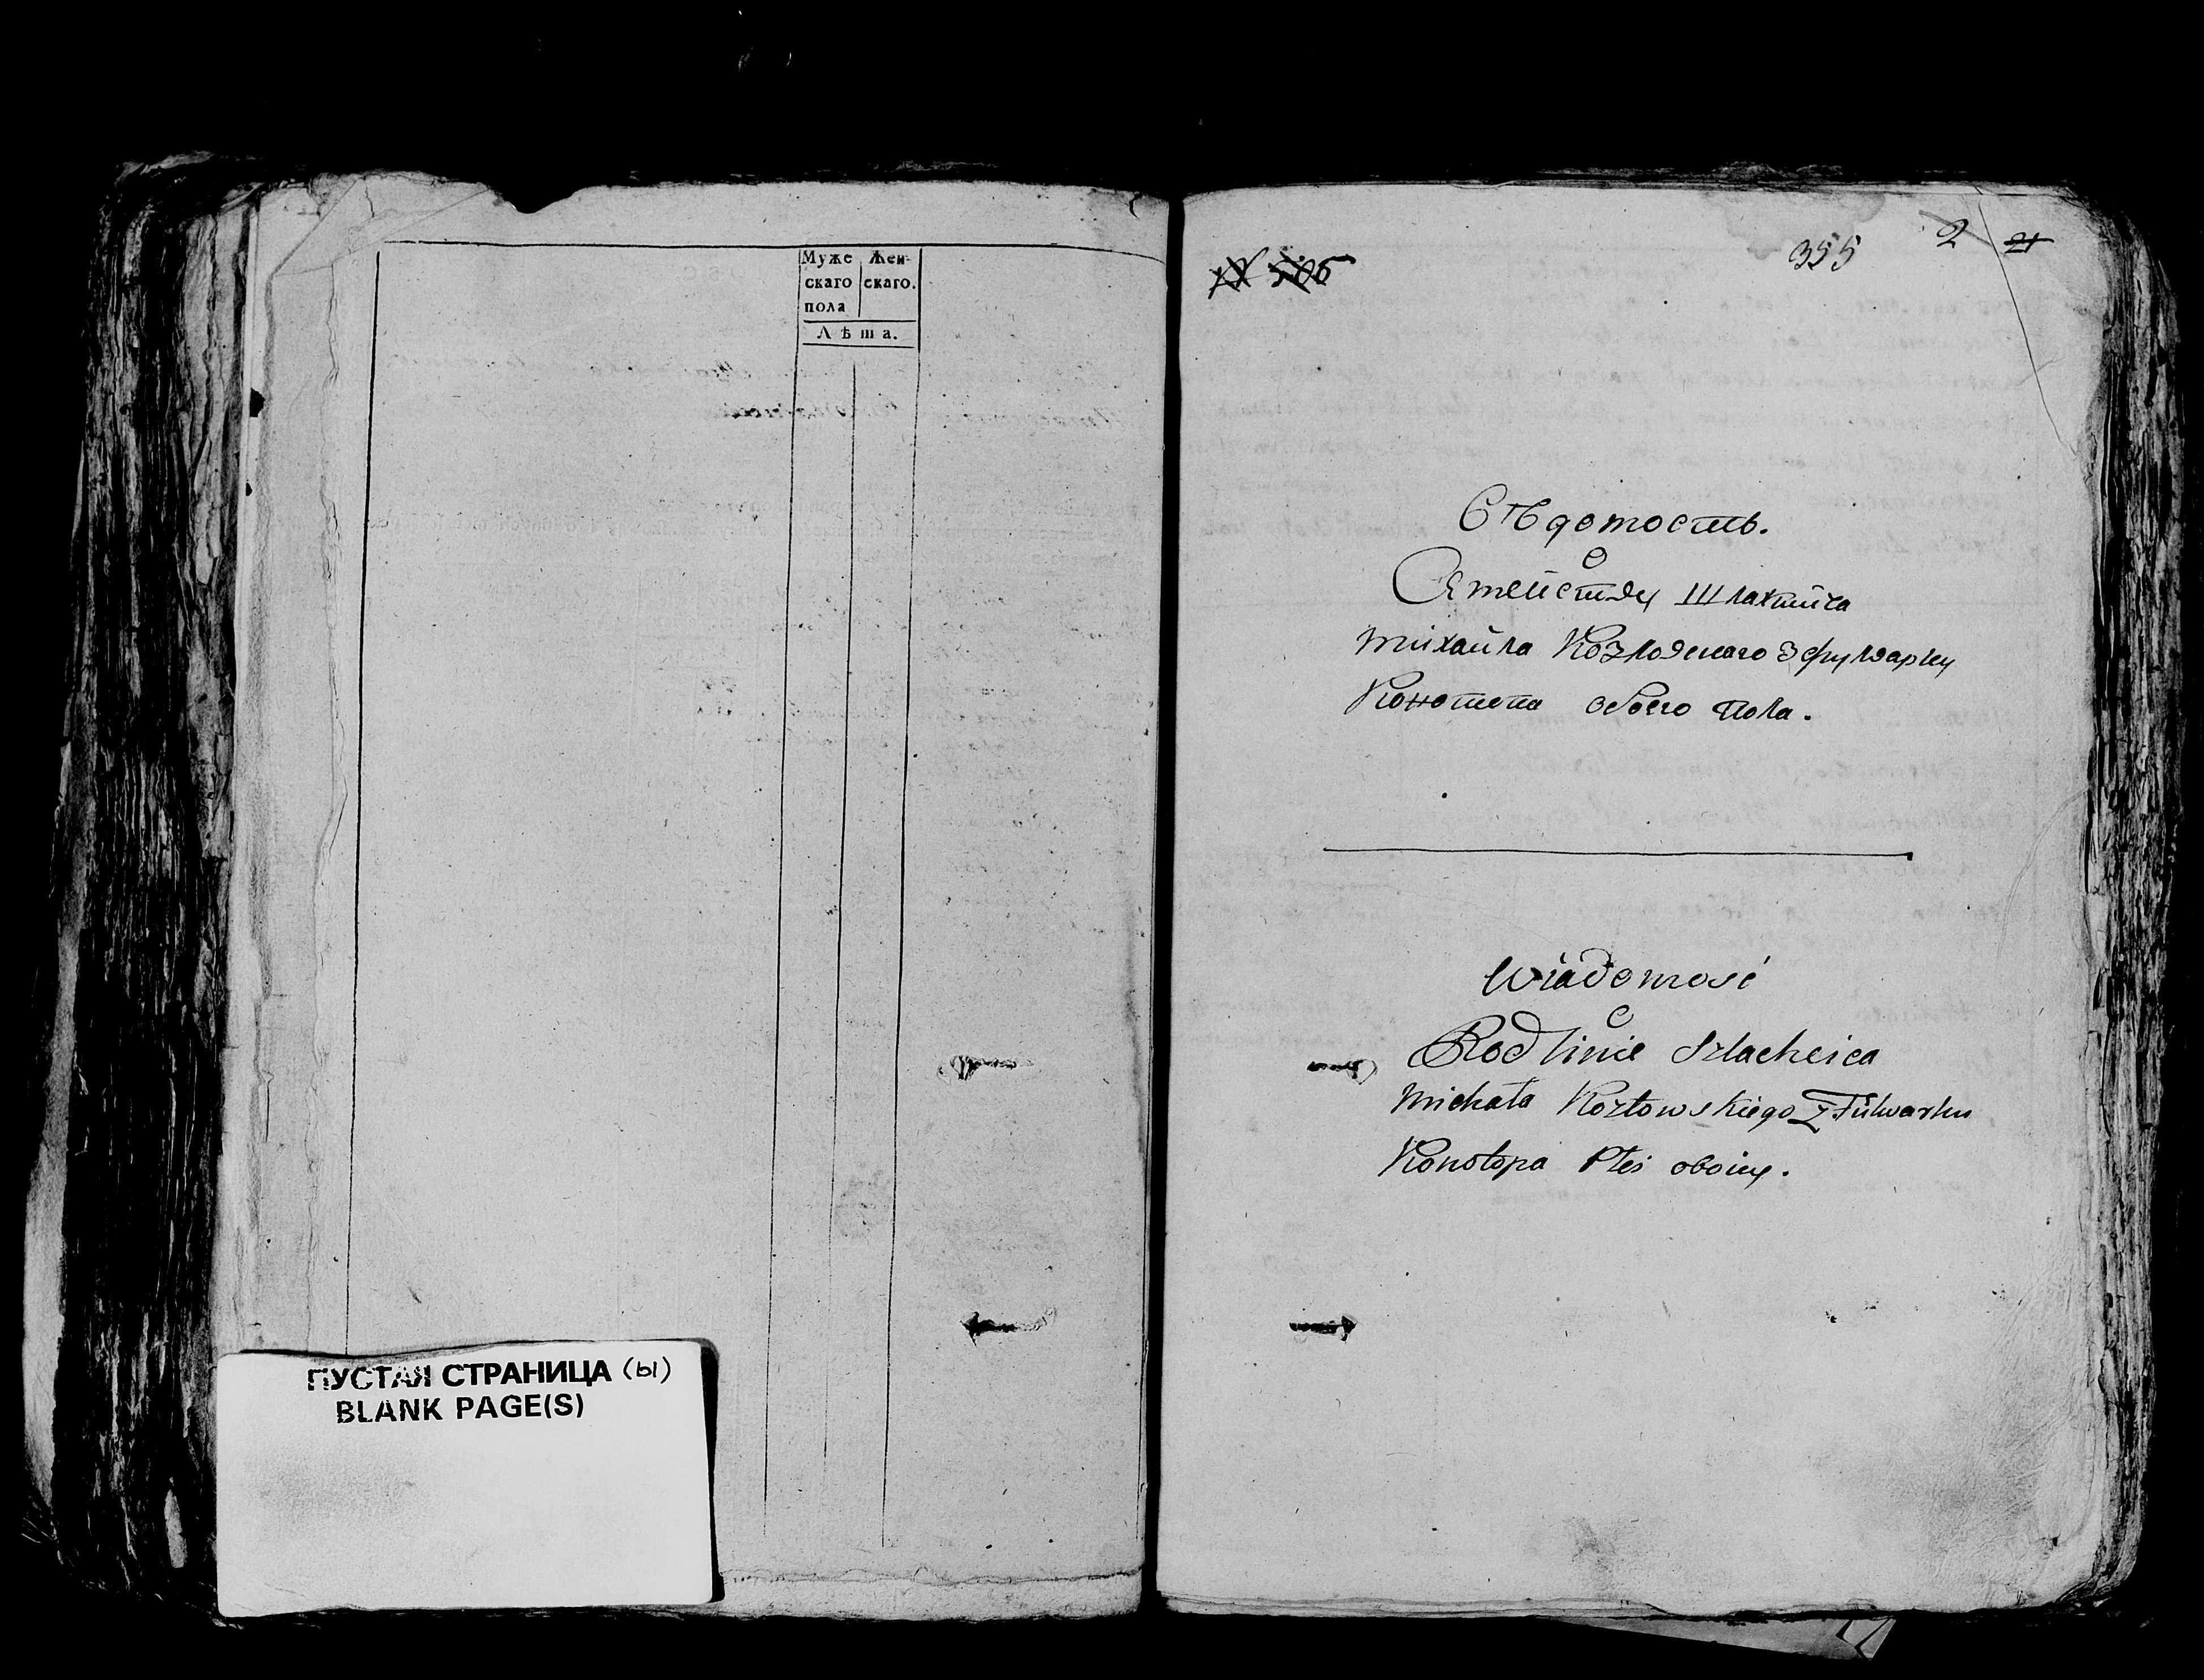 Муже Жен-
скаго скаго.
пола
Лѣта.
ПУСТАЯ СТРАНИЦА (ы)
BLANK PAGE(S)
355 2 21
№ 506
Вѣдомость.
О
Семействѣ Шляхтича
Михайла Козловскаго З фулварку
Конотопа обоего пола.
Wiadomość
O
Rodzinie Szlachcica
Michała Kozłowskiego z Fulwarku
Konotopa Płci oboiey.